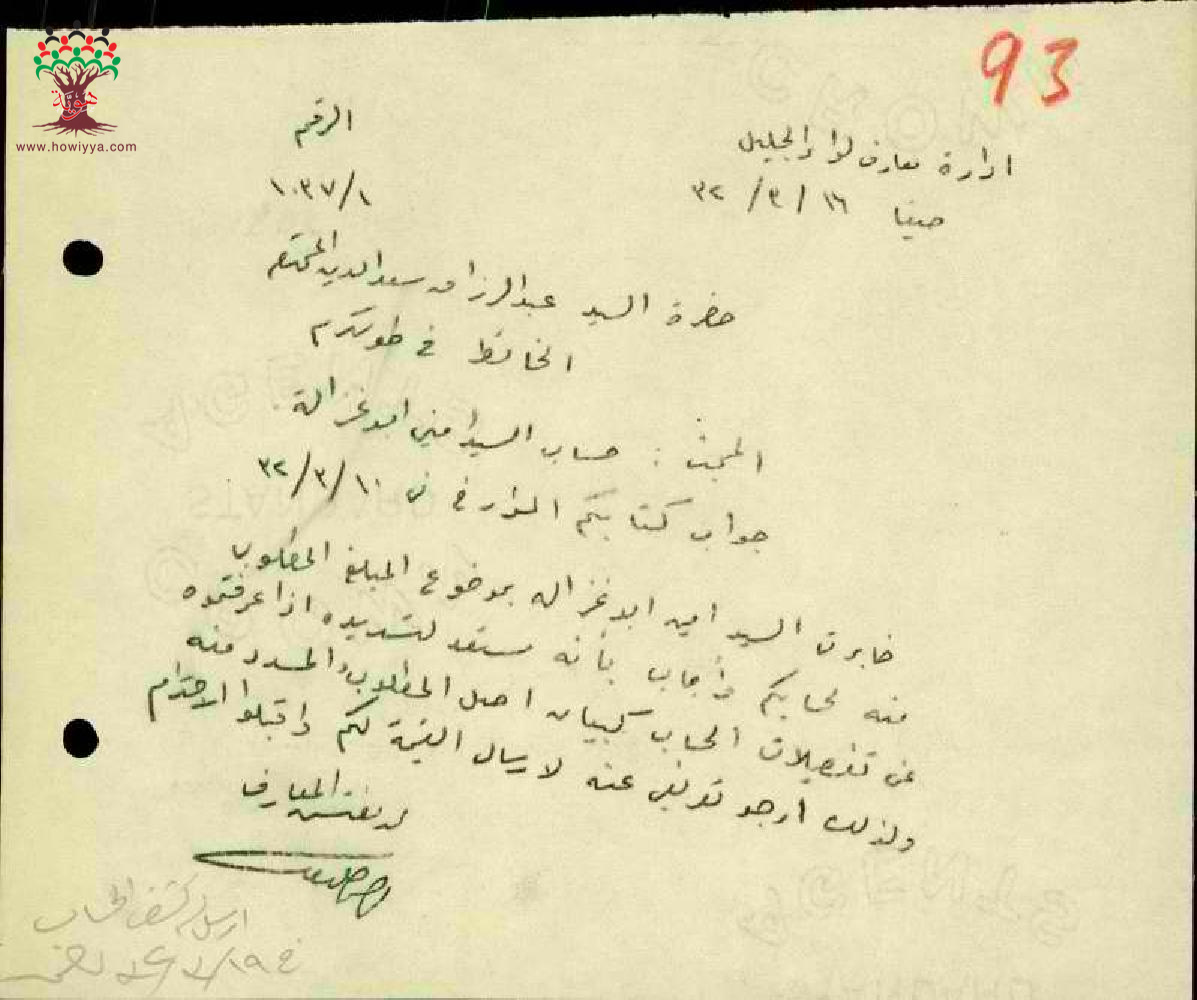 93
هوية
www.howiyya.com
ادارة معارف لواء الجليل
الرقم
حيفا ١٦ / ٣ / ٣٢
١٠٣٧/١
حضرة السيد عبد الرزاق سعد الدين المحترم
الخياط في طولكرم
المبحث : حساب السيد امين ابو غزالة
جواب كتابكم المؤرخ في ١٠ /٣/ ٣٢
خابرت السيد امين ابو غزاله بموضوع المبلغ المطلوب
منه لحسابكم وأجاب بأنه مستعد لتسديده اذا عرفتموه
عن تفصيلات الحساب كبيان اصل المطلوب والمسدد منه
ولذلك ارجو عنه لارسال القيمة لكم واقبلوا الاحترام
مفتش المعارف
ارسل كشف الحساب
في ١٩